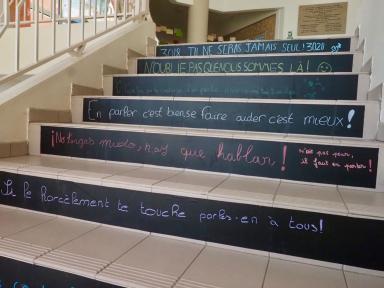 3018 TU NE SERAS JAMAIS SEUL! 3020
N'OUBLIE PAS QUE NOUS SOMMES LÀ!
En parler c'est bien se faire aider c'est mieux!
¡No tengas miedo, hay que hablar!
n'est pas peur,
il faut en parler!
Si le Harcèlement te touche parles-en à tous!